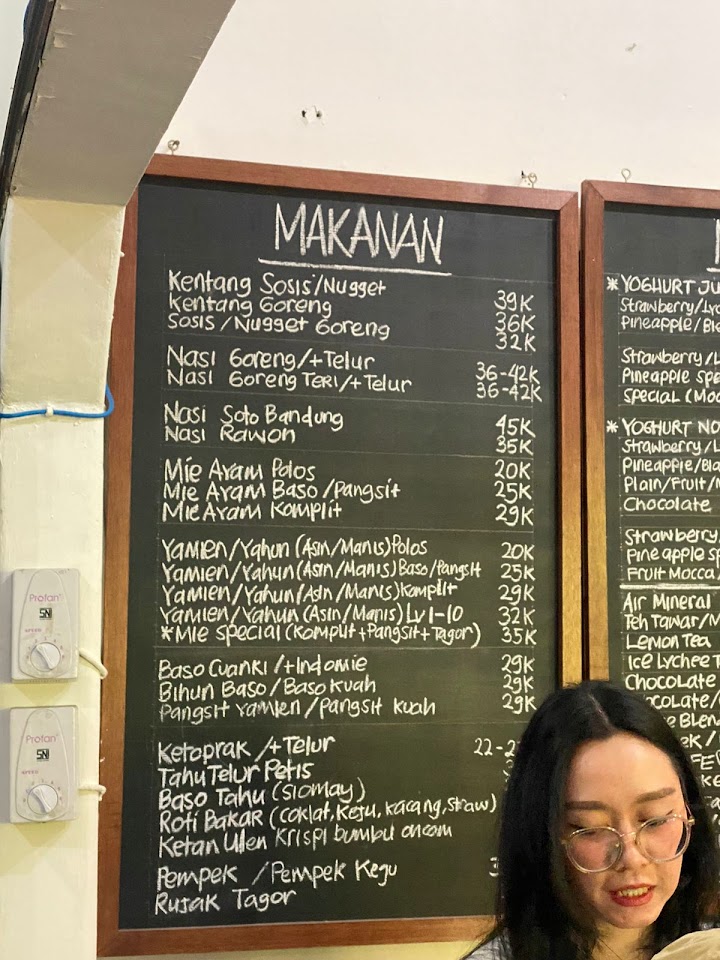 MAKANAN
Kentang Sosis/Nugget 39K
Kentang Goreng 36K
Sosis/Nugget Goreng 32K
Nasi Goreng/+Telur 36-42K
Nasi Goreng Teri/+Telur 36-42K
Nasi Soto Bandung 45K
Nasi Rawon 35K
Mie Ayam Polos 20K
Mie Ayam Baso/Pangsit 25K
Mie Ayam Komplit 29K
Yamien/Yahun (Asin/Manis) Polos 20K
Yamien/Yahun (Asin/Manis) Baso/Pangsit 25K
Yamien/Yahun (Asin/Manis) Komplit 29K
Yamien/Yahun (Asin/Manis) Lv 1-10 32K
*Mie Special (Komplit+Pangsit+Tagor) 35K
Baso Cuanki/+Indomie 29K
Bihun Baso/Baso Kuah 29K
Pangsit Yamien/Pangsit Kuah 29K
Ketoprak/+Telur 22-2
Tahu Telur Petis
Baso Tahu (Siomay)
Roti Bakar (Coklat, Keju, Kacang, Straw)
Ketan Ulen Krispi bumbu oncom
Pempek /Pempek Keju 3
Rujak Tagor
*YOGHURT JU
Strawberry/Lyc
Pineapple/Ble
Strawberry/L
Pineapple Spe
Special (Moc
*YOGHURT NO
Strawberry/L
Pineapple/Bla
Plain/Fruit/M
Chocolate
Strawberry/
Pineapple Sp
Fruit Mocca
Air Mineral
Teh Tawar/M
Lemon Tea
Ice Lychee T
Chocolate
Protan
SNI
SPEED
Protan
SNI
SPEED